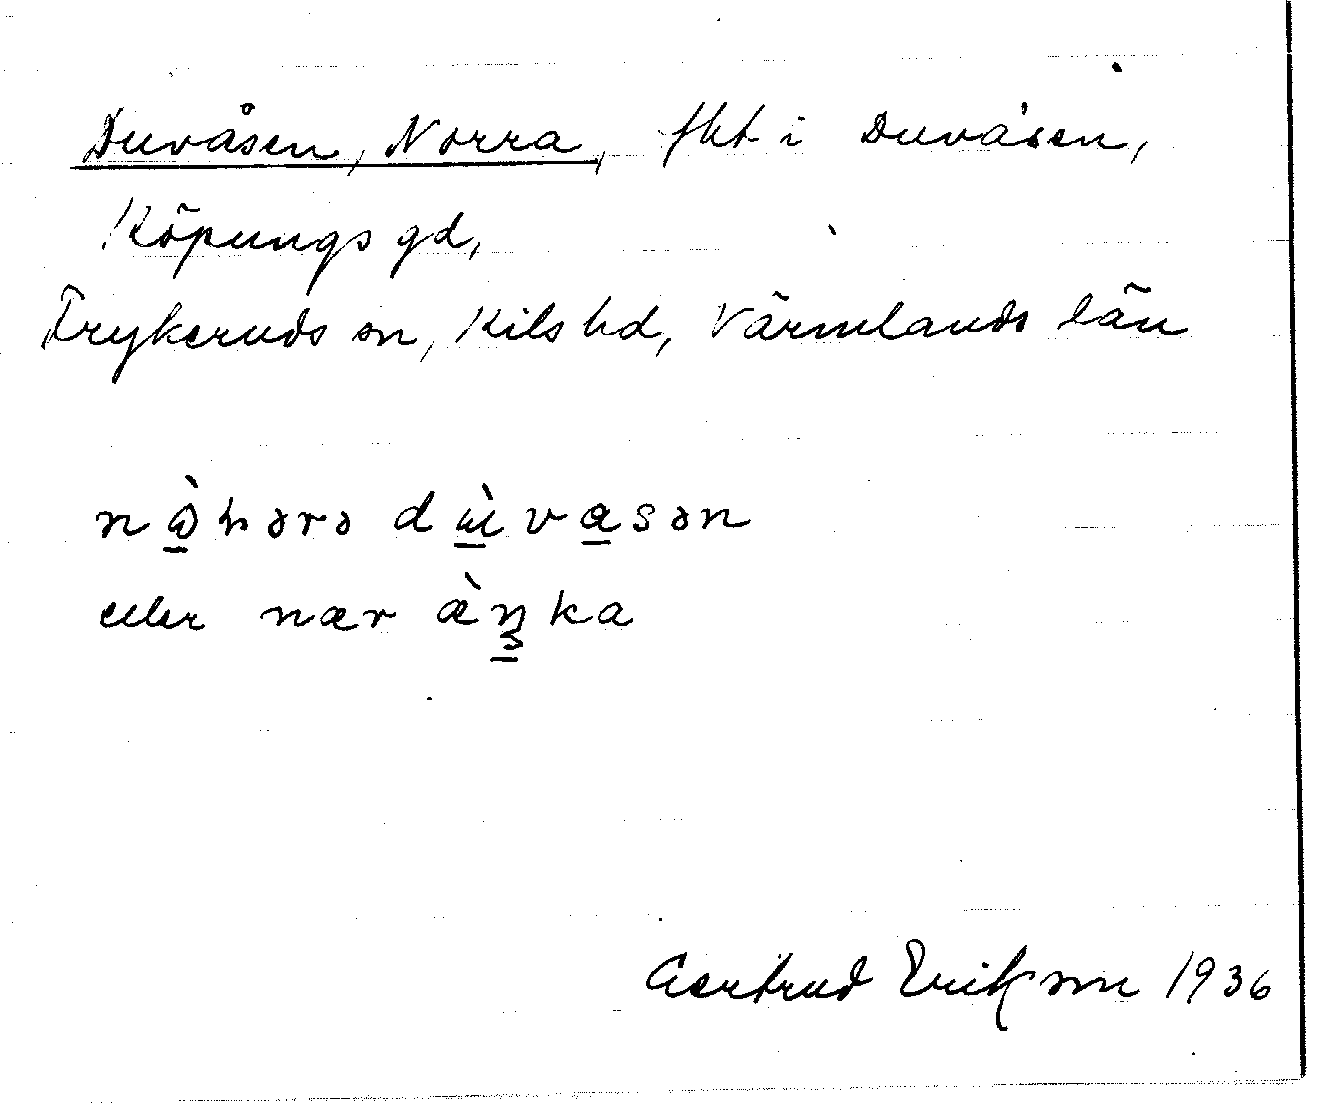 Duvåsen, Norra, fht i Duvåsen,
Köpungs gd,
Frykeruds sn, Kils hd, Värmlands län
eller nær æ̀ŋka
Gertrud Erikson 1936